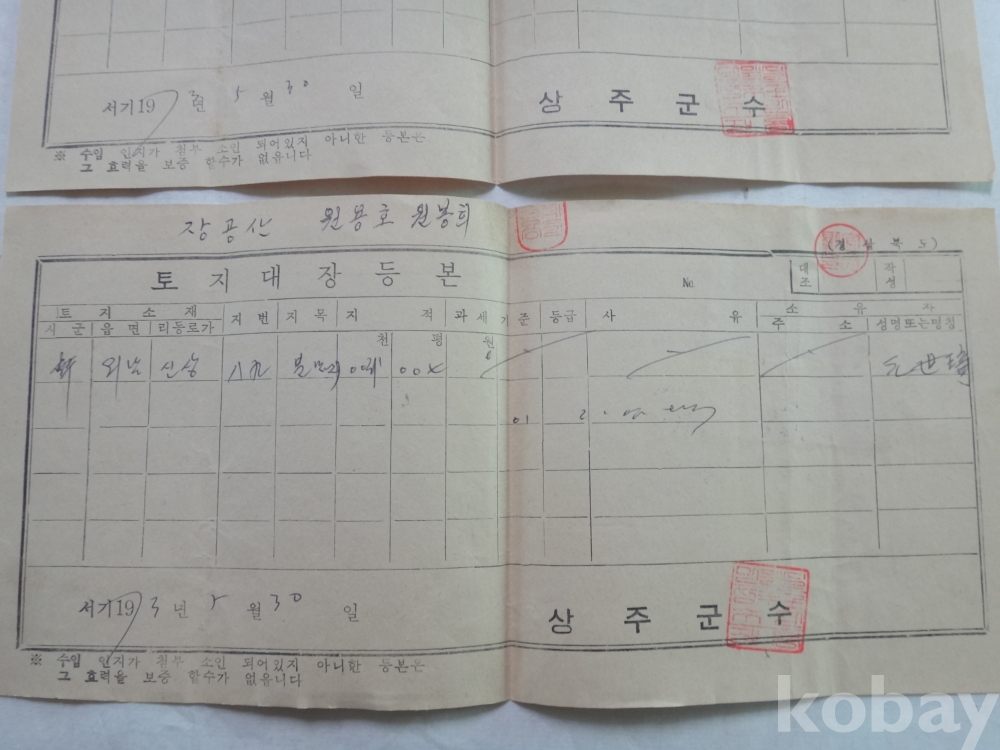 서기19 73년 5월 30일
상주군수
※ 수입 인지가 첨부 소인 되어있지 아니한 등본은
그 효력을 보증 할수가 없읍니다
장공산 원용호 원봉희
(경상북도)
토지대장등본 No. 대조 작성
토지소재 지번 지목 지적 과세기준 등급 사유 소유자
시군 읍면 리동로가 주소 성명또는명칭
천 평 원
외남 신상 八九 元世
01 2
서기19 73년 5월 30일
상주군수
※ 수입 인지가 첨부 소인 되어있지 아니한 등본은
그 효력을 보증 할수가 없읍니다
kobay